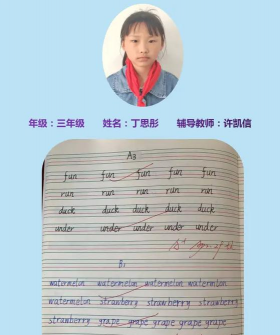 年级：三年级 姓名：丁思彤 辅导教师：许凯信
A3
fun fun fun fun fun
run run run run run
duck duck duck duck duck
under under under under under
B1
watermelon watermelon watermelon watermelon
watermelon strawberry strawberry strawberry
strawberry grape grape grape grape grape